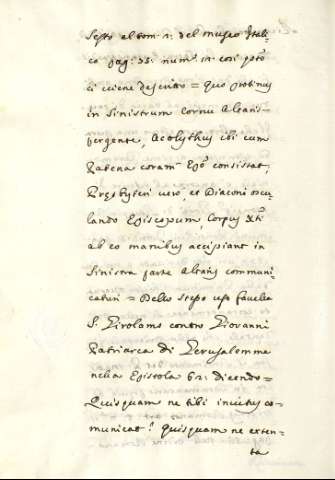 sesto al tom: 2: del museo Itali-
co pag: 55: num: in cosi pto
ci viene descritto = quo protinus
in sinistrum cornu Altaris
pergente, Acolythus ibi cum
Patena coram Epo consistat,
Presbyteri vero, et Diaconi oscu-
lando Episcopum, Corpus Xti
ab eo manibus accipiant in
sinistra parte Altaris communi-
caturi = Dello stesso uso favella
S. Girolamo contro Giovanni
Patriarca di Gerusalemme
nella Epistola 62: dicendo =
Quisquam ne tibi invitus co-
municat? quisquam ne exten-
ta